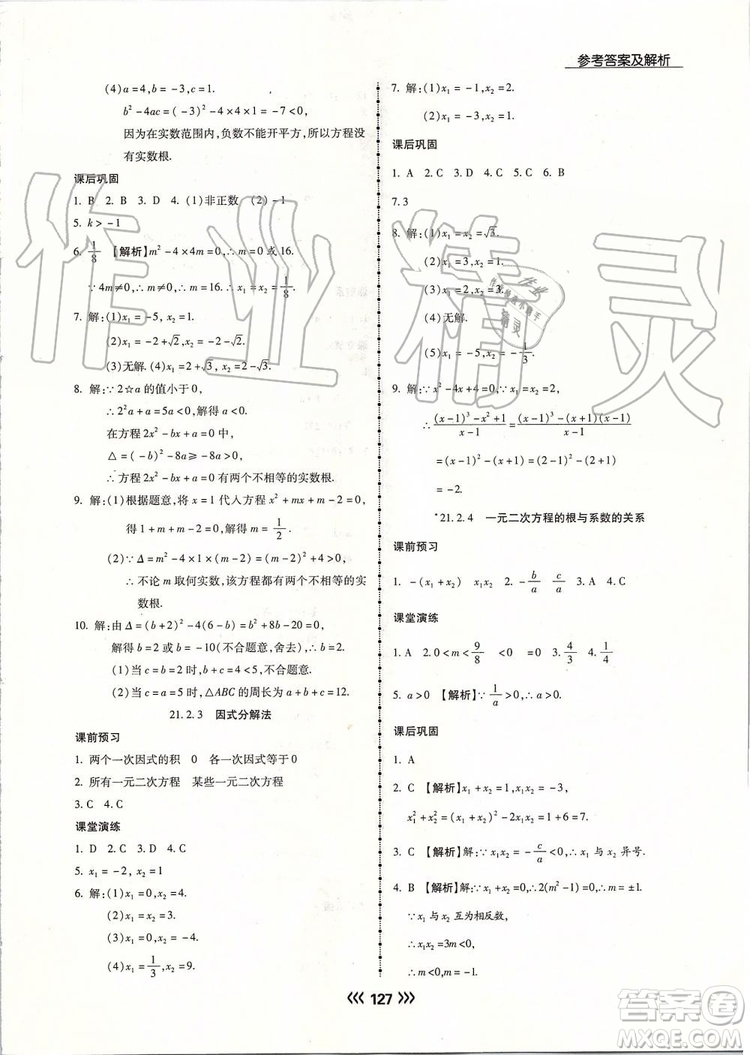 参考答案及解析
(4)a=4,b=-3,c=1.
b²-4ac=(-3)²-4×4×1=-7<0,
因为在实数范围内,负数不能开平方,所以方程没
有实数根.
课后巩固
1. B 2. B 3. D 4. (1)非正数 (2)-1
5. k>-1
6. 1/8 【解析】m²-4×4m=0,∴m=0或16.
∵4m≠0,∴m=16,∴x₁=x₂=1/8.
7. 解:(1)x₁=-5,x₂=1.
(2)x₁=-2+√2,x₂=-2-√2.
(3)无解.(4)x₁=2+√2,x₂=2-√2.
8. 解:∵2☆a的值小于0,
∴2²a+a=5a<0,解得a<0.
在方程2x²-bx+a=0中,
Δ=(-b)²-8a≥-8a>0,
∴方程2x²-bx+a=0有两个不相等的实数根.
9. 解:(1)根据题意,将x=1代入方程x²+mx+m-2=0,
得1+m+m-2=0,解得m=1/2.
(2)∵Δ=m²-4×1×(m-2)=(m-2)²+4>0,
∴不论m取何实数,该方程都有两个不相等的实
数根.
10. 解:由Δ=(b+2)²-4(6-b)=b²+8b-20=0,
解得b=2或b=-10(不合题意,舍去),
(1)当c=2时,b=2,不合题意,
(2)当c=5时,△ABC的周长为5+5+2=12.
21.2.3 因式分解法
课前预习
1. 两个一次因式的积 0 各一次因式等于0
2. 所有一元二次方程 某些一元二次方程
3. C 4. C
课堂演练
1. D 2. D 3. D 4. C
5. x₁=-2,x₂=1
6. 解:(1)x₁=0,x₂=4.
(2)x₁=0,x₂=2.
(3)x₁=0,x₂=-4.
(4)x₁=1/3,x₂=9.
7. 解:(1)x₁=-1,x₂=2.
(2)x₁=-3,x₂=1.
课后巩固
1. A 2. C 3. D 4. C 5. C 6. B
7.3
8. 解:(1)x₁=x₂=√3.
(2)x₁=2,x₂=4.
(3)x₁=0,x₂=2.
(4)无解.
(5)x₁=-2,x₂=-1/3.
9. 解:∵x²-4x+4=0,∴x=2,
∴((x-1)³-x²+1)/(x-1)=((x-1)³-(x+1)(x-1))/(x-1)
=(x-1)²-(x+1)=(2-1)²-(2+1)
=-2.
*21.2.4 一元二次方程的根与系数的关系
课前预习
1. -(x₁+x₂) x₁x₂ 2. -b/a c/a 3. A 4. D
课堂演练
1. A 2. 0<m<9/8 <0 =0 3. 4/3 4. 1/4
5. a>0 【解析】∵1/a>0,∴a>0.
课后巩固
1. A
2. C 【解析】x₁+x₂=1,x₁x₂=-3,
x₁²+x₂²=(x₁+x₂)²-2x₁x₂=1+6=7.
3. C 【解析】∵x₁x₂=-c/a<0,∴x₁与x₂异号.
4. B 【解析】∵x₁+x₂=0,∴2(m²-1)=0,∴m=±1.
∵x₁与x₂互为相反数,
∴x₁x₂=3m<0,
∴m<0,∴m=-1.
《《 127 》》
作业精灵
作业
精灵
答案圈
MXQE.COM